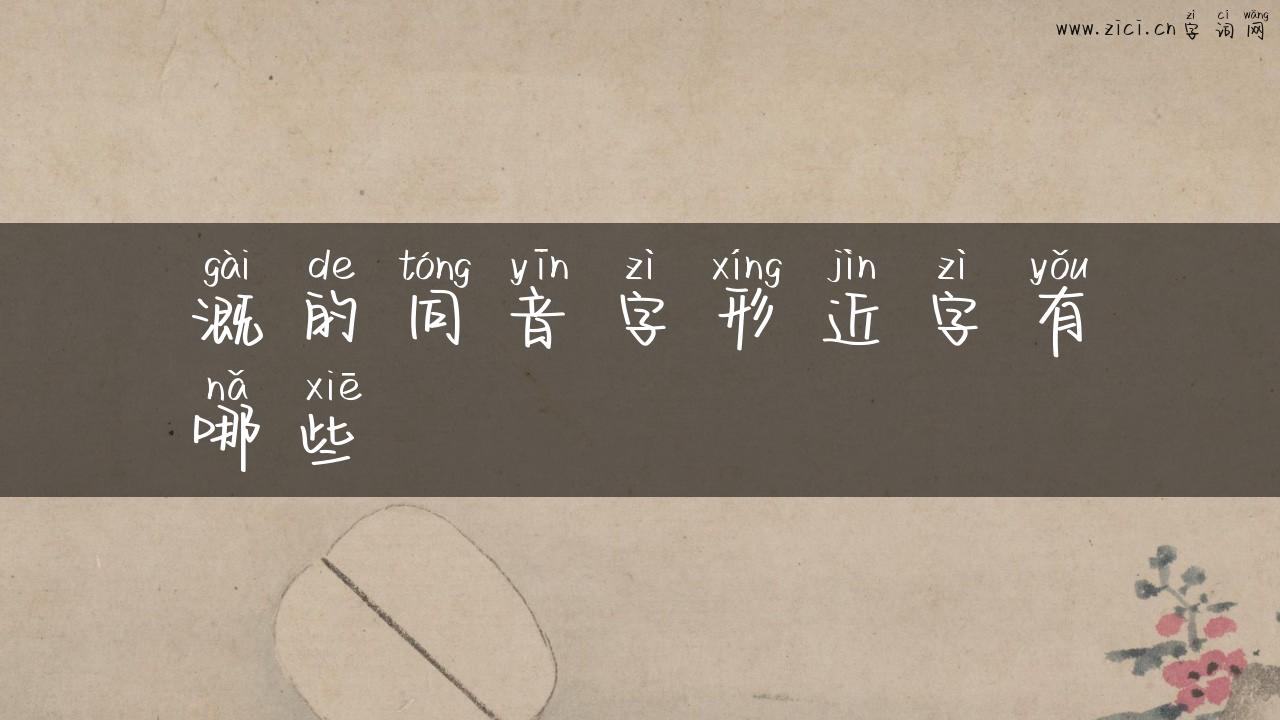 zì cí wǎng
www.zici.cn 字词网
gài de tóng yīn zì xíng jìn zì yǒu
溉的同音字形近字有
nǎ xiē
哪些